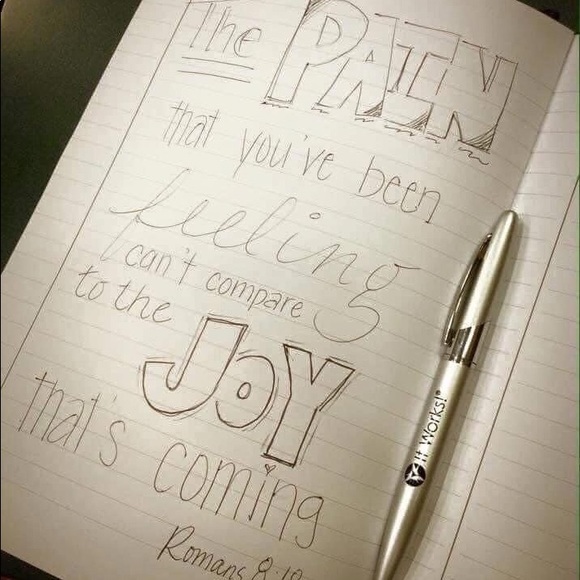 The PAIN
that you've been
feeling
can't compare
to the
JOY
that's coming
Romans
It Works!®